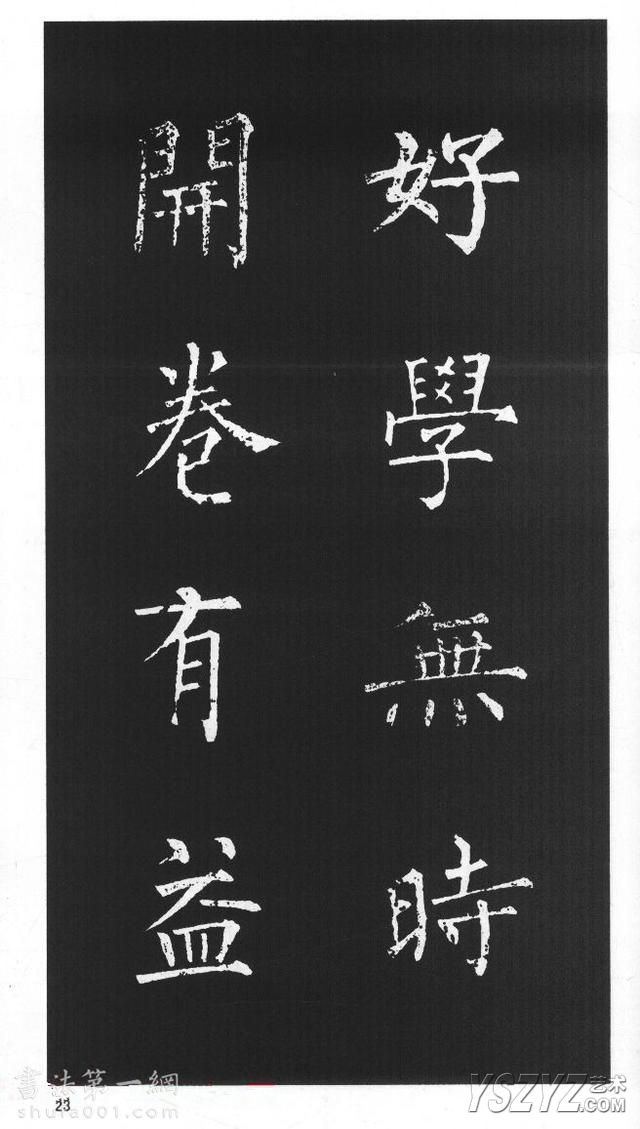 好學無時
開卷有益
23
書法第一網
shufa001.com
YSZYZ艺术
.COM